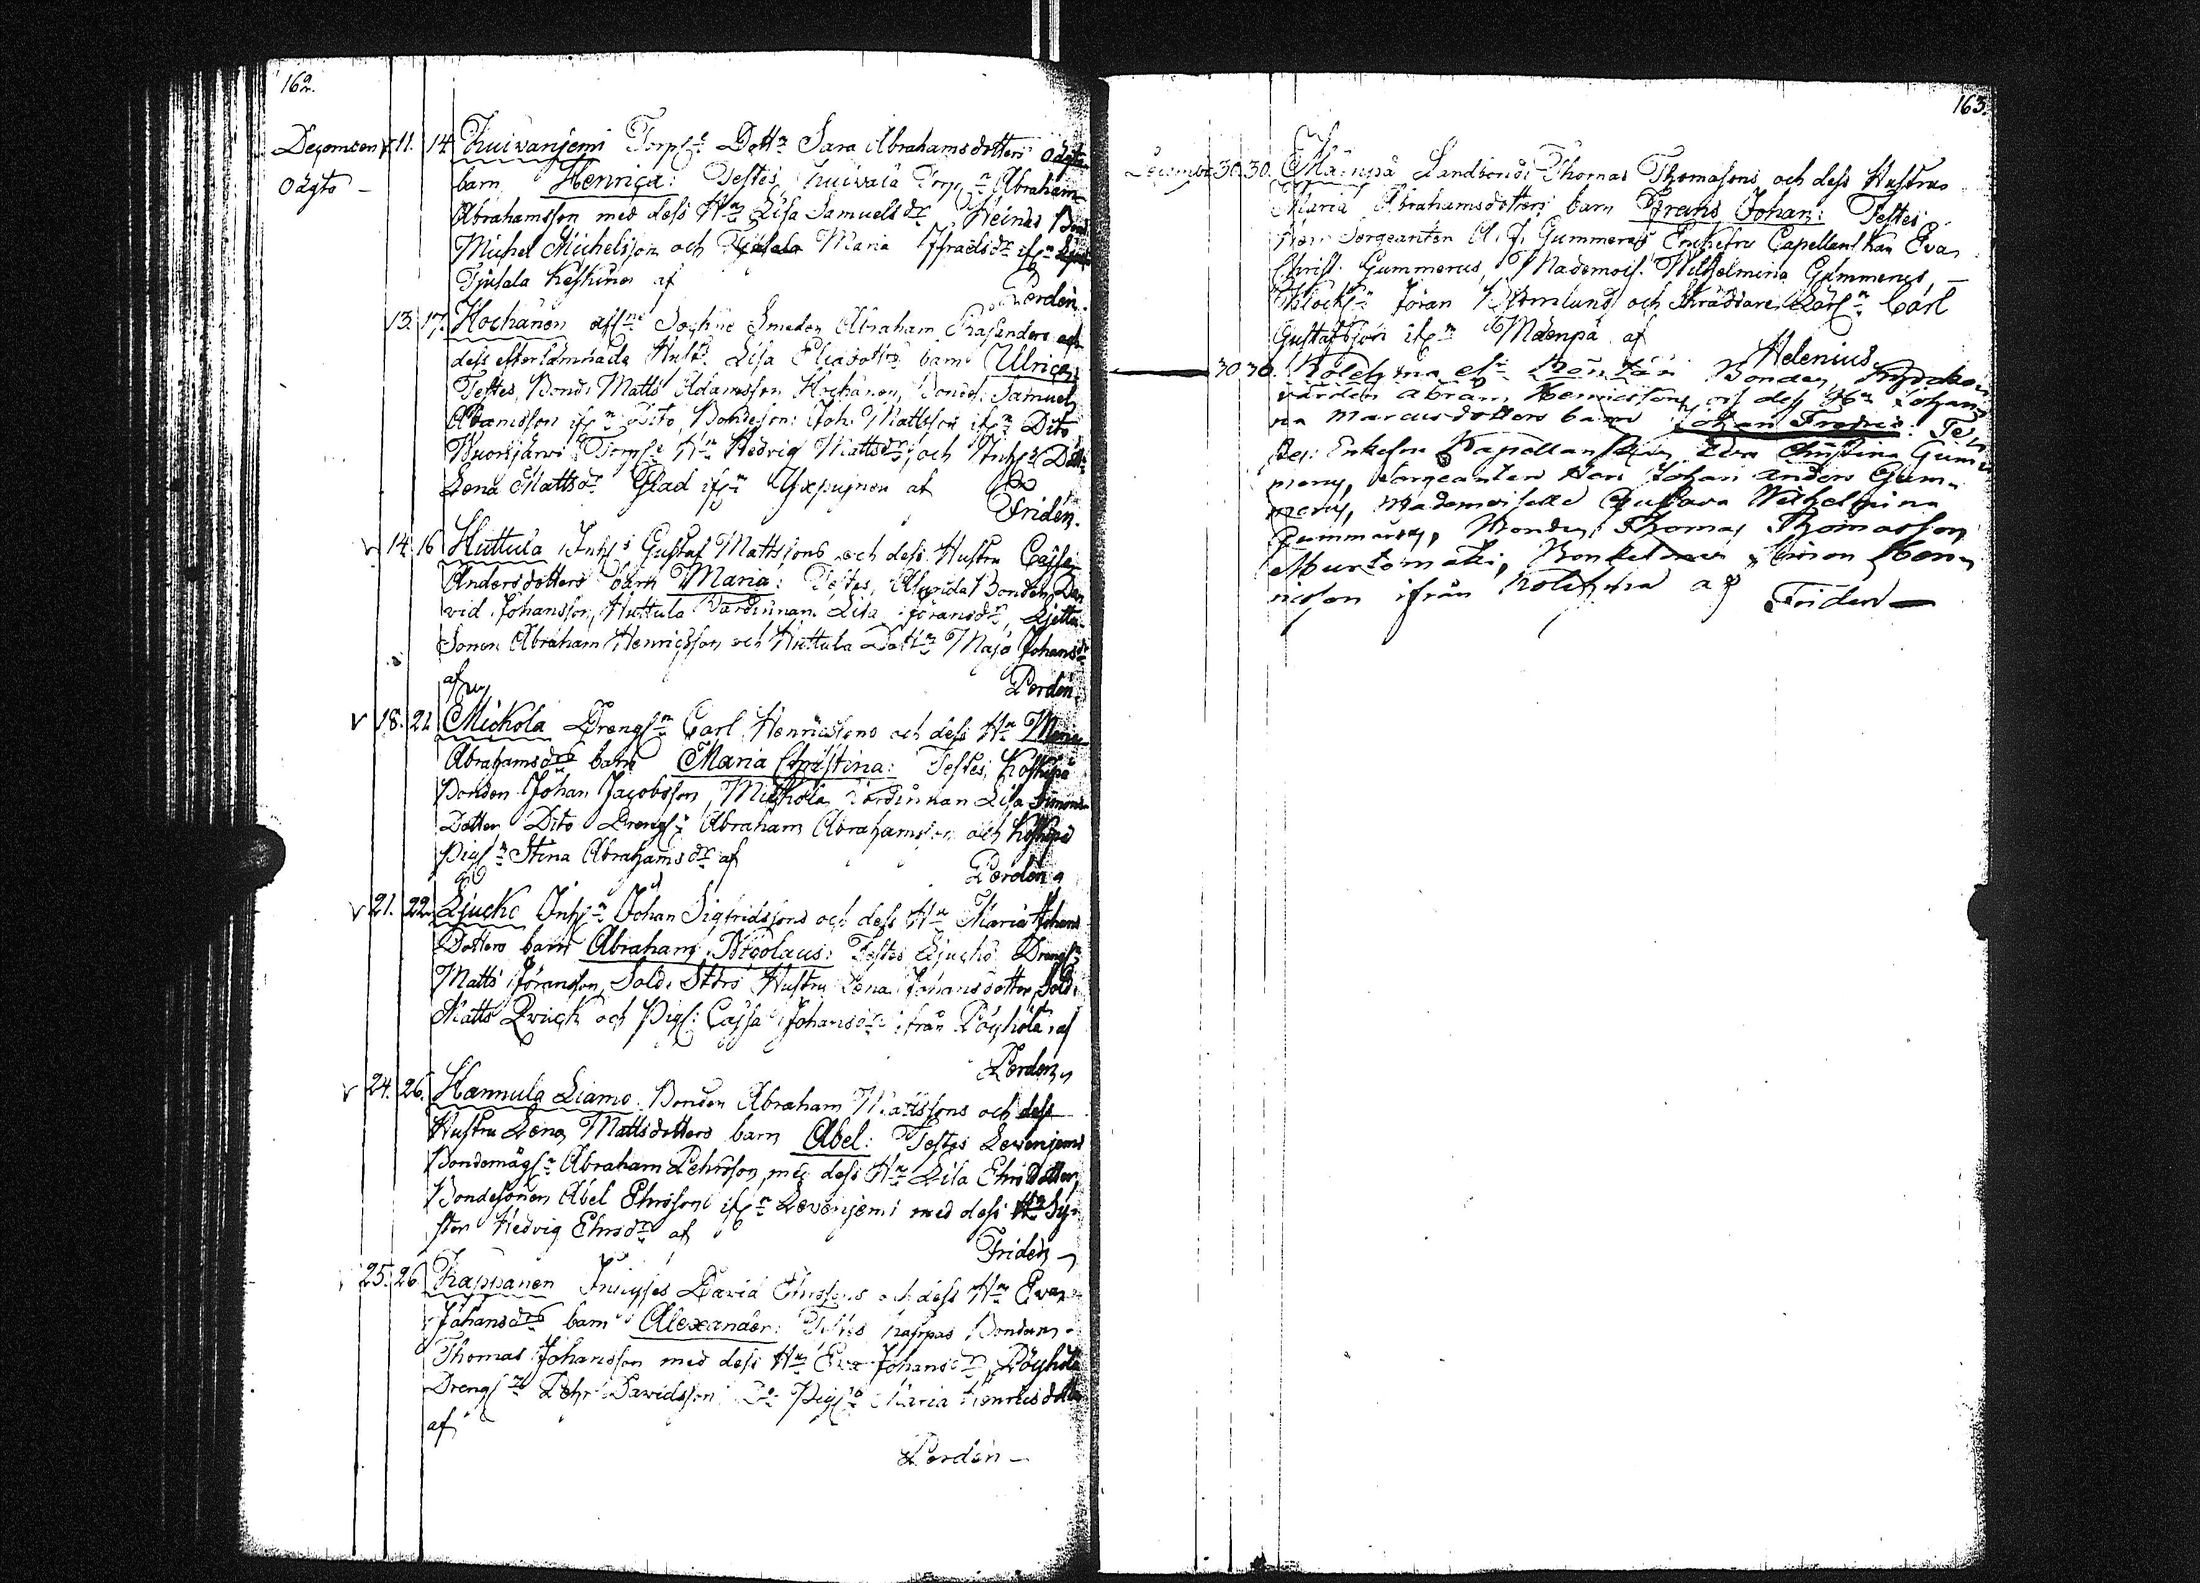 162.
Decemben 11. 14 Kuivanjemi Torp:s Dott:r Sara Abrahamsdotters oägta
oägta barn Henrica: Testes, Kuivala Torp:n Abraham
Abrahamsson med dess H:u Lisa Samuelsd:r, Heinas Bond
Michel Michelsson och Maria Israelsd:r if:n
Tjusala Keskinen af
Pordén.
13. 17. Hochanen afl:ne Sochne Smeden Abraham Rasenders och
dess efterlämnade Hust: Lisa Eliædott:s barn Ulrica:
Testes, Bond: Matts Adamsson Hochanen, Bonds: Samuel
Adamsson if:n Dito, Bondeson: Joh: Mattsson if:n Dito
Torp:s H:u Hedvig Mattsd:r, och Inh:s Dott:r
Lena Mattsd:r Glad if:n af
Fridén.
14. 16 Huttula Inh:s Gustaf Mattssons och dess Hustru Cajsa
Andersdotters barn Maria: Testes, Bonden Da
vid Johansson, Huttula Värdinnan Lisa Jöransd:r,
Sonen Abraham Henricsson och Huttula Dott:r Maja Johansd:r
af
Pordén.
V 18. 21 Mickola Drengs:n Carl Henricssons och dess H:u Maria
Abrahamsd:rs barn Maria Christina: Testes, Koskepä
Bonden Johan Jacobsson, Mickola Värdinnan Lisa Simons
Dotter, Dito Drengs:n Abraham Abrahamsson och Koskepä
Pigs:n Stina Abrahamsd:r af
Pordén
V 21. 22. Ljucko Inh:n Johan Sigfridssons och dess H:u Maria Johans
Dotters barn Abraham Nicolaus: Testes Ljucko Drengs:n
Matts Jöransson, Sold: Störs Hustru Lena Johansdotter, Sold:
Matts Qvick och Pigs: Cajsa Johansd:r ifrån Pöyhölä, af
Pordén
V 24. 26. Hannula Liamo Bonden Abraham Mattssons och dess
Hustru Lena Mattsdotters barn Abel: Testes Levenjemi
Bondemågs:n Abraham Pehrsson, med dess H:u Lisa Ehrsdotter,
Bondesonen Abel Ehrsson if:n Levenjemi med dess Sy-
ster Hedvig Ehrsd:r af
Fridén
25. 26 Kappanen Inhyses David Ehrssons och dess H:u Eva
Johansd:rs barn Alexander: Testes Bonden
Thomas Johansson med dess H:u Eva Johansd:r, Pöyhölä
Drengs:n Pehr Davidsson, D:o Pigs:n Maria Henricsdotter
af
Pordén
163.
December 30. 30. Mäenpä Landbond: Thomas Thomasons och dess Hustrus
Maria Abrahamsdotters barn Frans Johan: Testes
Herr Sergeanten A. J. Gummerus Enkefru Capellanskan Eva
Christ: Gummerus, Mademois: Wilhelmina Gummerus,
Klock:n Jöran Björnlund och Skräddare Lärl:n Carl
Gustafsson if:n Mäenpä af
Helenius
30 30. Bonden
värden Abram Henricsson, och dess H:u Johan
na Marcusdotters barn Johan Fredric: Te
stes: Enkefru Kapellanskan Eva Christina Gum
merus, Sergeanten Herr Johan Anders Gum-
merus, Mademoiselle Gustava Wilhelmina
Gummerus, Bonden Thomas Thomasson
Simon Hen
ricson ifrån af Friden